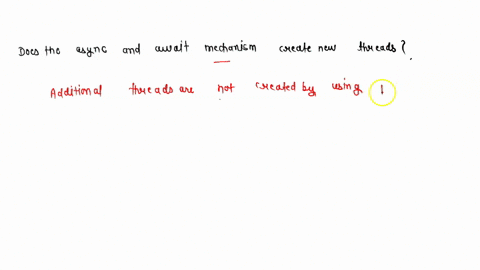 Does the async and await mechanism create new threads?.
Additional threads are not created by using